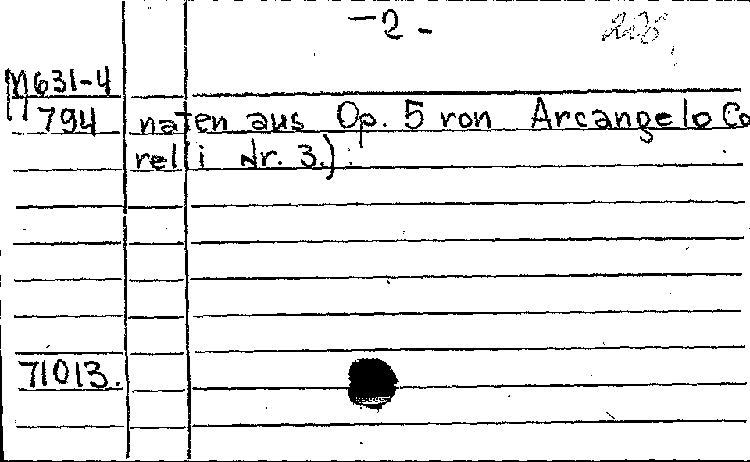 -2-
M631-4
794 naten aus Op. 5 von Arcangelo Co
relli Nr. 3.)
71013.